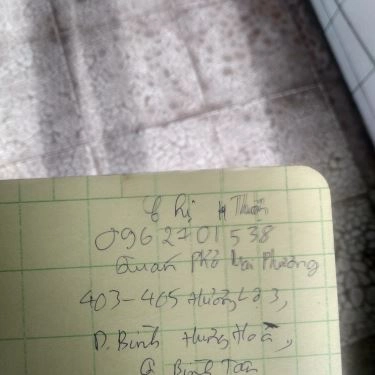 Chị Thuận
0962701538
Quán Phở Mai Phương
403-405 Hương Lộ 3,
P. Bình Hưng Hoà,
Q Bình Tân